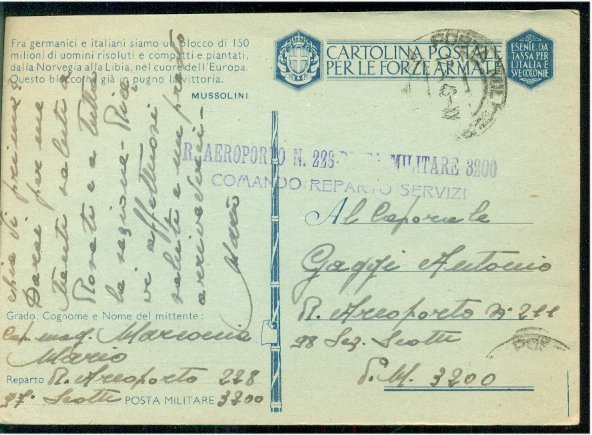 Fra germanici e italiani siamo un blocco di 150
milioni di uomini risoluti e compatti e piantati,
dalla Norvegia alla Libia, nel cuore dell'Europa.
Questo blocco ha già in pugno la vittoria.
MUSSOLINI
CARTOLINA POSTALE
PER LE FORZE ARMATE
ESENTE DA
TASSA PER
L'ITALIA E
SVE COLONIE
R. AEROPORTO N. 228 MILITARE 3200
COMANDO REPARTO SERVIZI
Al Caporale
Gaggi Antonio
R. Areoporto n. 211
98 Sez. Scotti
P. M. 3200
Grado, Cognome e Nome del mittente:
Cap. mag.
Mario
Reparto R. Areoporto 228
97ª Scotti POSTA MILITARE 3200
di prima
per me
Tanti saluti a
e a tutta
la
vi affettuosi
saluti e un presto
arrivederci
Mario